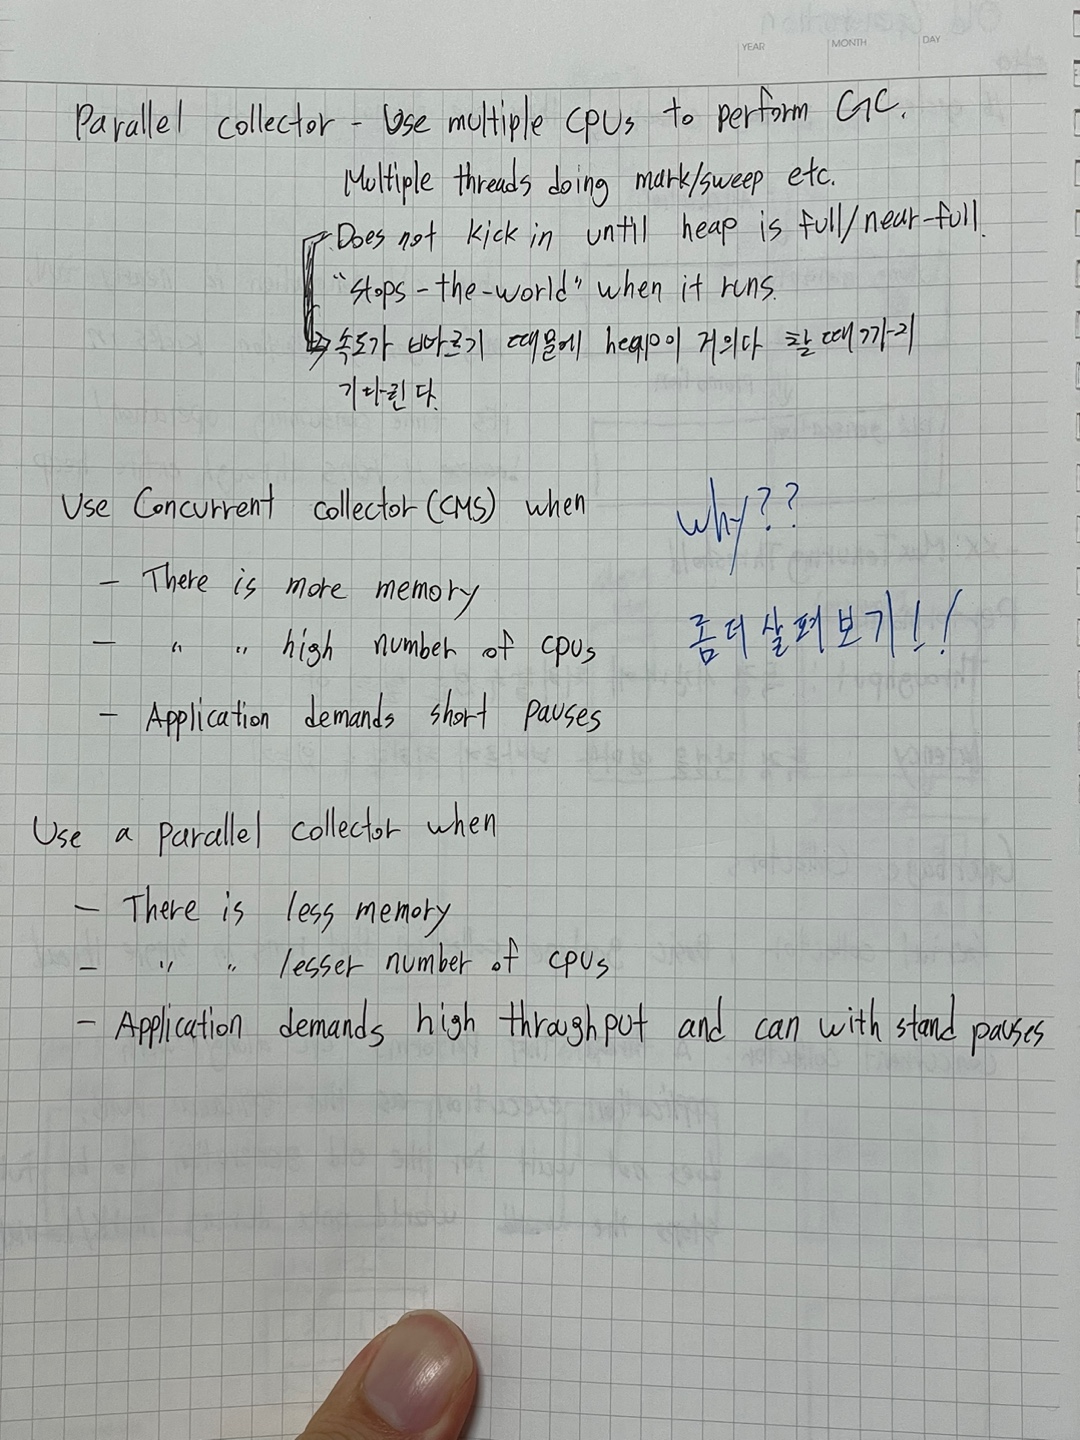 YEAR MONTH DAY
Parallel collector - Use multiple CPUs to perform GC.
Multiple threads doing mark/sweep etc.
Does not kick in until heap is full/near-full.
"stops-the-world" when it runs.
속도가 빠르기 때문에 heap이 거의다 찰 때까지
기다린다.
Use Concurrent collector (CMS) when
why??
- There is more memory
- " " high number of cpus
좀더 살펴보기!!
- Application demands short pauses
Use a parallel collector when
- There is less memory
- " " lesser number of cpus
- Application demands high throughput and can with stand pauses